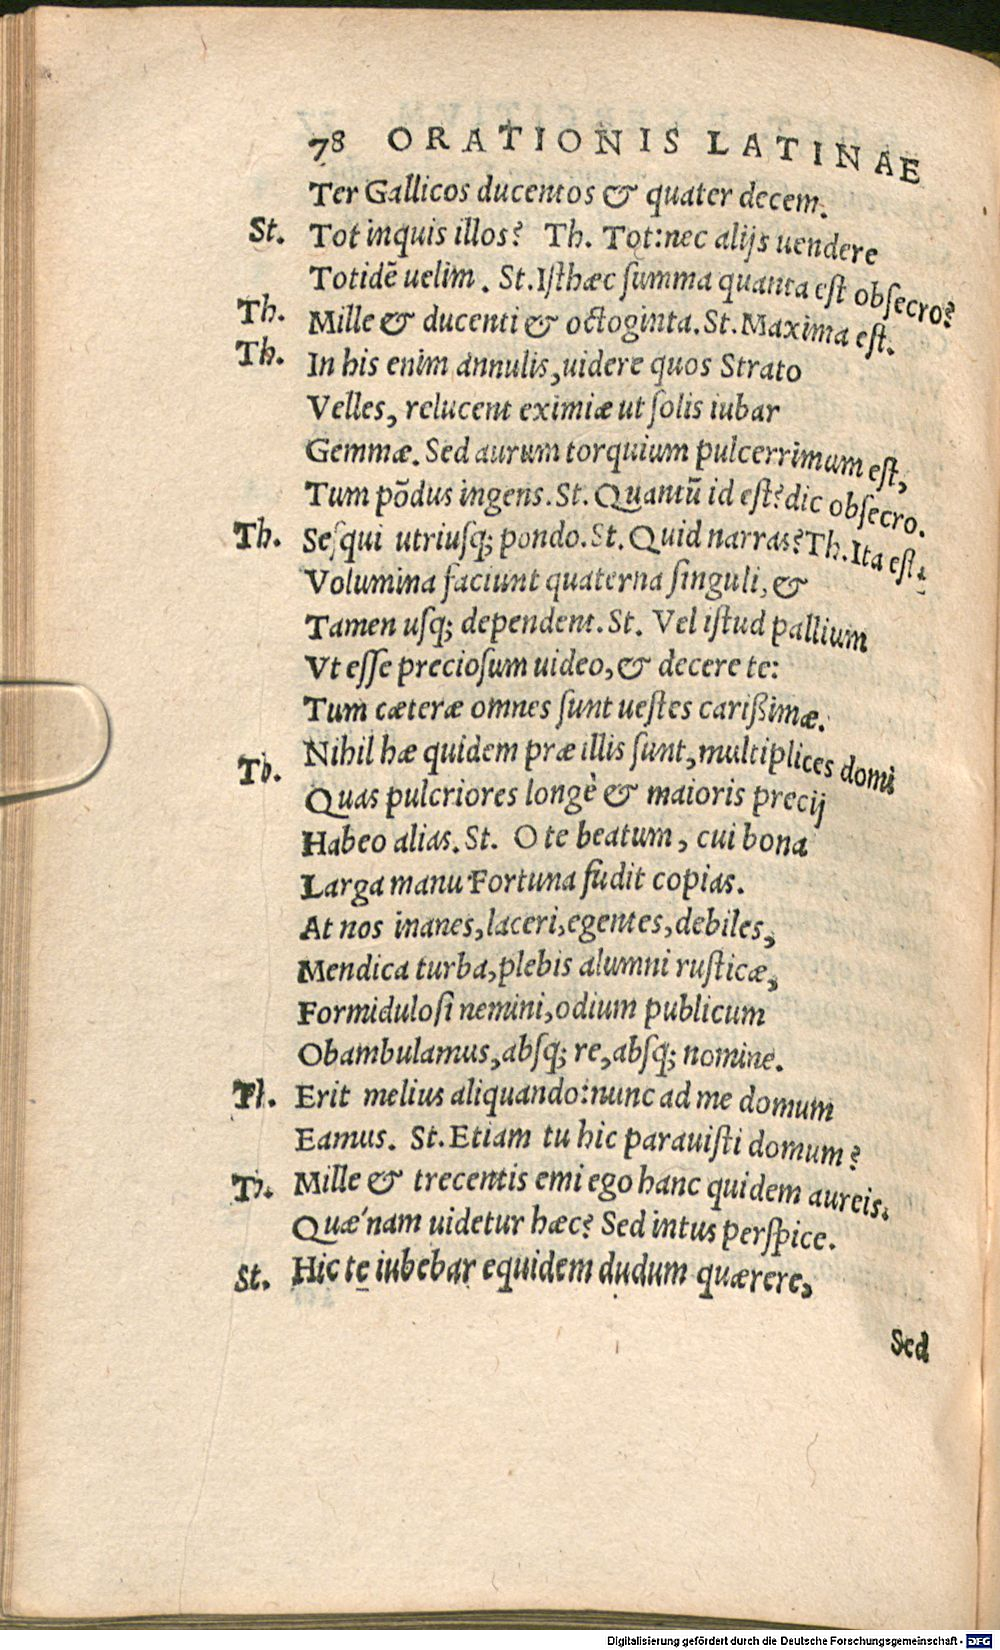 78 ORATIONIS LATINAE
Ter Gallicos ducentos & quater decem.
St. Tot inquis illos? Th. Tot:nec alijs uendere
Totidẽ uelim. St. Isthæc summa quanta est obsecro?
Th. Mille & ducenti & octoginta. St. Maxima est.
Th. In his enim annulis, uidere quos Strato
Velles, relucent eximiæ ut solis iubar
Gemmæ. Sed aurum torquium pulcerrimum est,
Tum põdus ingens. St. Quantũ id est? dic obsecro.
Th. Sesqui utriusq; pondo. St. Quid narras? Th. Ita est.
Volumina faciunt quaterna singuli, &
Tamen usq; dependent. St. Vel istud pallium
Vt esse preciosum uideo, & decere te:
Tum cæteræ omnes sunt uestes carißimæ.
Th. Nihil hæ quidem præ illis sunt, multiplices domi
Quas pulcriores longè & maioris precij
Habeo alias. St. O te beatum, cui bona
Larga manu Fortuna fudit copias.
At nos inanes, laceri, egentes, debiles,
Mendica turba, plebis alumni rusticæ,
Formidulosi nemini, odium publicum
Obambulamus, absq; re, absq; nomine.
Th. Erit melius aliquando: nunc ad me domum
Eamus. St. Etiam tu hic parauisti domum?
Th. Mille & trecentis emi ego hanc quidem aureis.
Quæ'nam uidetur hæc? Sed intus perspice.
St. Hic te iubebar equidem dudum quærere,
Sed
Digitalisierung gefördert durch die Deutsche Forschungsgemeinschaft - DFG